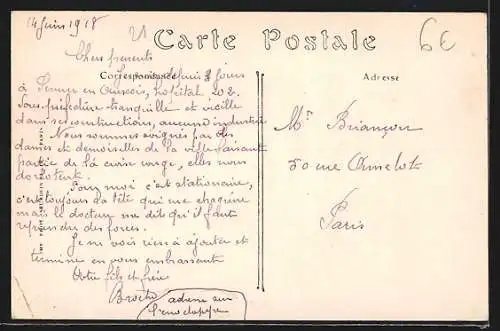 14 Juin 1918
6€
Carte Postale
Correspondance
Adresse
Chers parents
depuis 8 jours
à Semur en Auxois, hôpital 202.
Sous préfecture tranquille et vieille
dans ses constructions, aucune industrie
Nous sommes soignés par des
dames et demoiselles de la ville faisant
partie de la croix rouge, elles nous
Pour moi c'est stationnaire,
c'est toujours la tête qui me chagrine
mais le docteur me dit qu'il faut
reprendre des forces.
Je ne vois rien à ajouter et
termine en vous embrassant
Votre fils et frère
adresse sur
l'enveloppe
Mr Briançon
50 rue Amelot
Paris